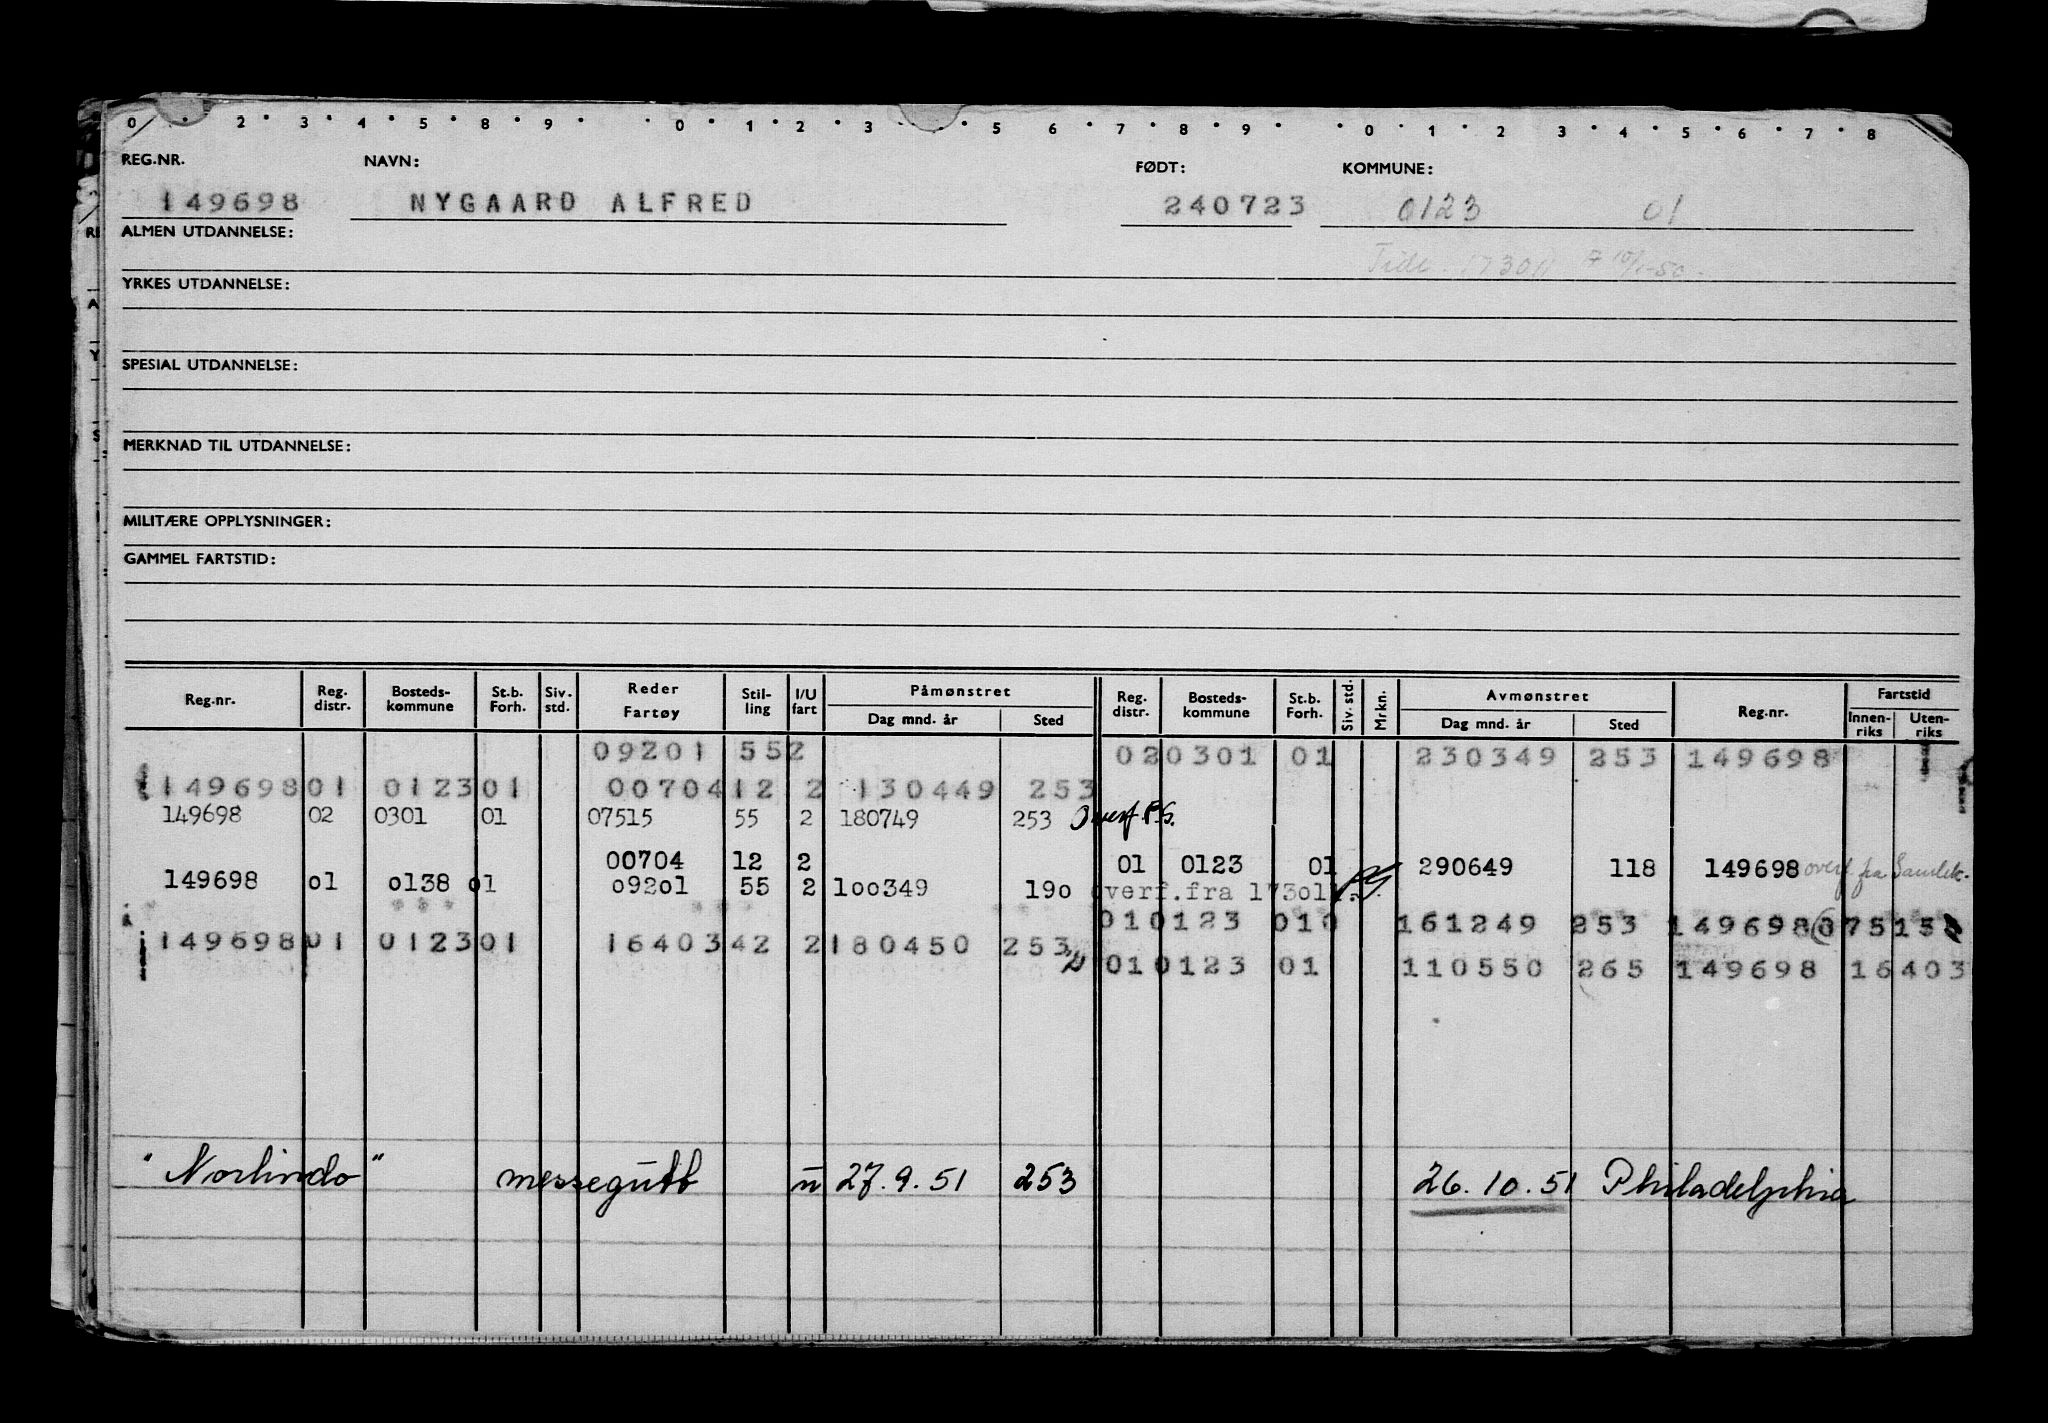 0 2 3 4 5 8 9 0 1 2 3 5 6 7 8 9 0 1 2 3 4 5 6 7 8
REG.NR. NAVN: FØDT: KOMMUNE:
149698 NYGAARD ALFRED 240723 0123 01
ALMEN UTDANNELSE:
17301
YRKES UTDANNELSE:
SPESIAL UTDANNELSE:
MERKNAD TIL UTDANNELSE:
MILITÆRE OPPLYSNINGER:
GAMMEL FARTSTID:
Reg.nr. Reg. distr. Bosteds-kommune St.b. Forh. Siv. std. Reder Fartøy Stil-ling I/U fart Påmønstret Dag mnd. år Sted Reg. distr. Bosteds-kommune St.b. Forh. Siv. std. Mrkn. Avmønstret Dag mnd. år Sted Reg.nr. Fartstid Innen-riks Uten-riks
09201 552 020301 01 230349 253 149698
149698 01 0123 01 00704 12 2 130449 253
149698 02 0301 01 07515 55 2 180749 253 Overf. P.S.
00704 12 2 01 0123 01 290649 118 149698 overf. fra Samlek.
149698 01 0138 01 09201 55 2 100349 190 overf.fra 17301
010123 010 161249 253 149698 07515
149698 01 0123 01 16403 42 2 180450 253
010123 01 110550 265 149698 16403
"Norlindo" messegutt u 27.9.51 253 26.10.51 Philadelphia